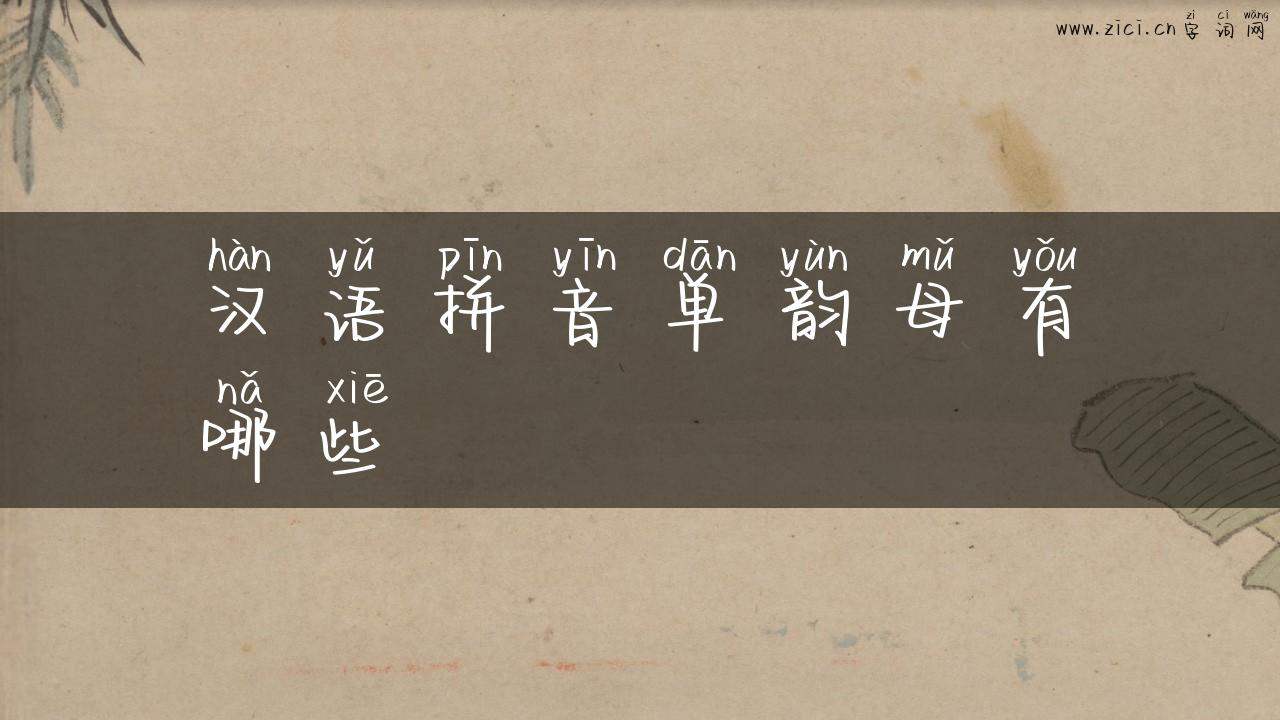 zì cí wǎng
www.zici.cn 字词网
hàn yǔ pīn yīn dān yùn mǔ yǒu
汉语拼音单韵母有
nǎ xiē
哪些